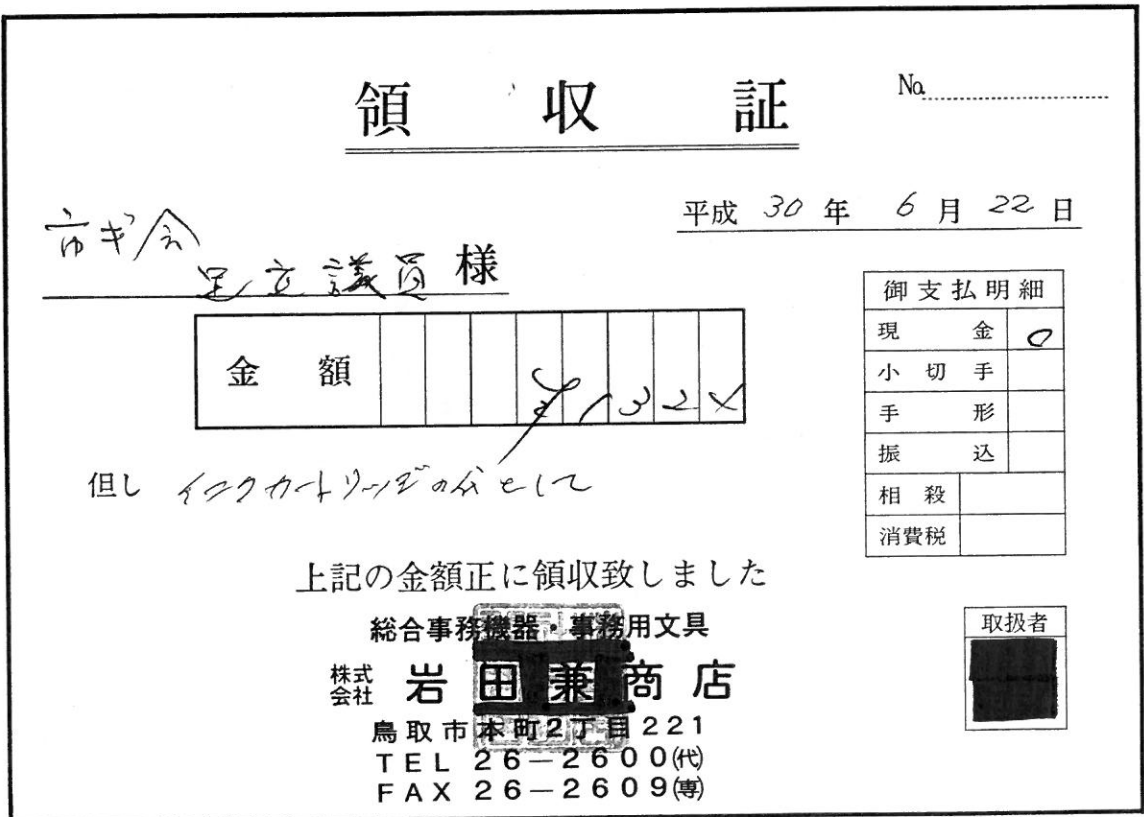 領収証
No.
平成 30 年 6 月 22 日
市ギ会
足立議員 様
金額 ¥1324
但し インクカートリッジの分として
御支払明細
現金 ○
小切手
手形
振込
相殺
消費税
上記の金額正に領収致しました
総合事務機器・事務用文具
株式会社 岩田兼商店
鳥取市本町2丁目221
TEL 26-2600㈹
FAX 26-2609(専)
取扱者